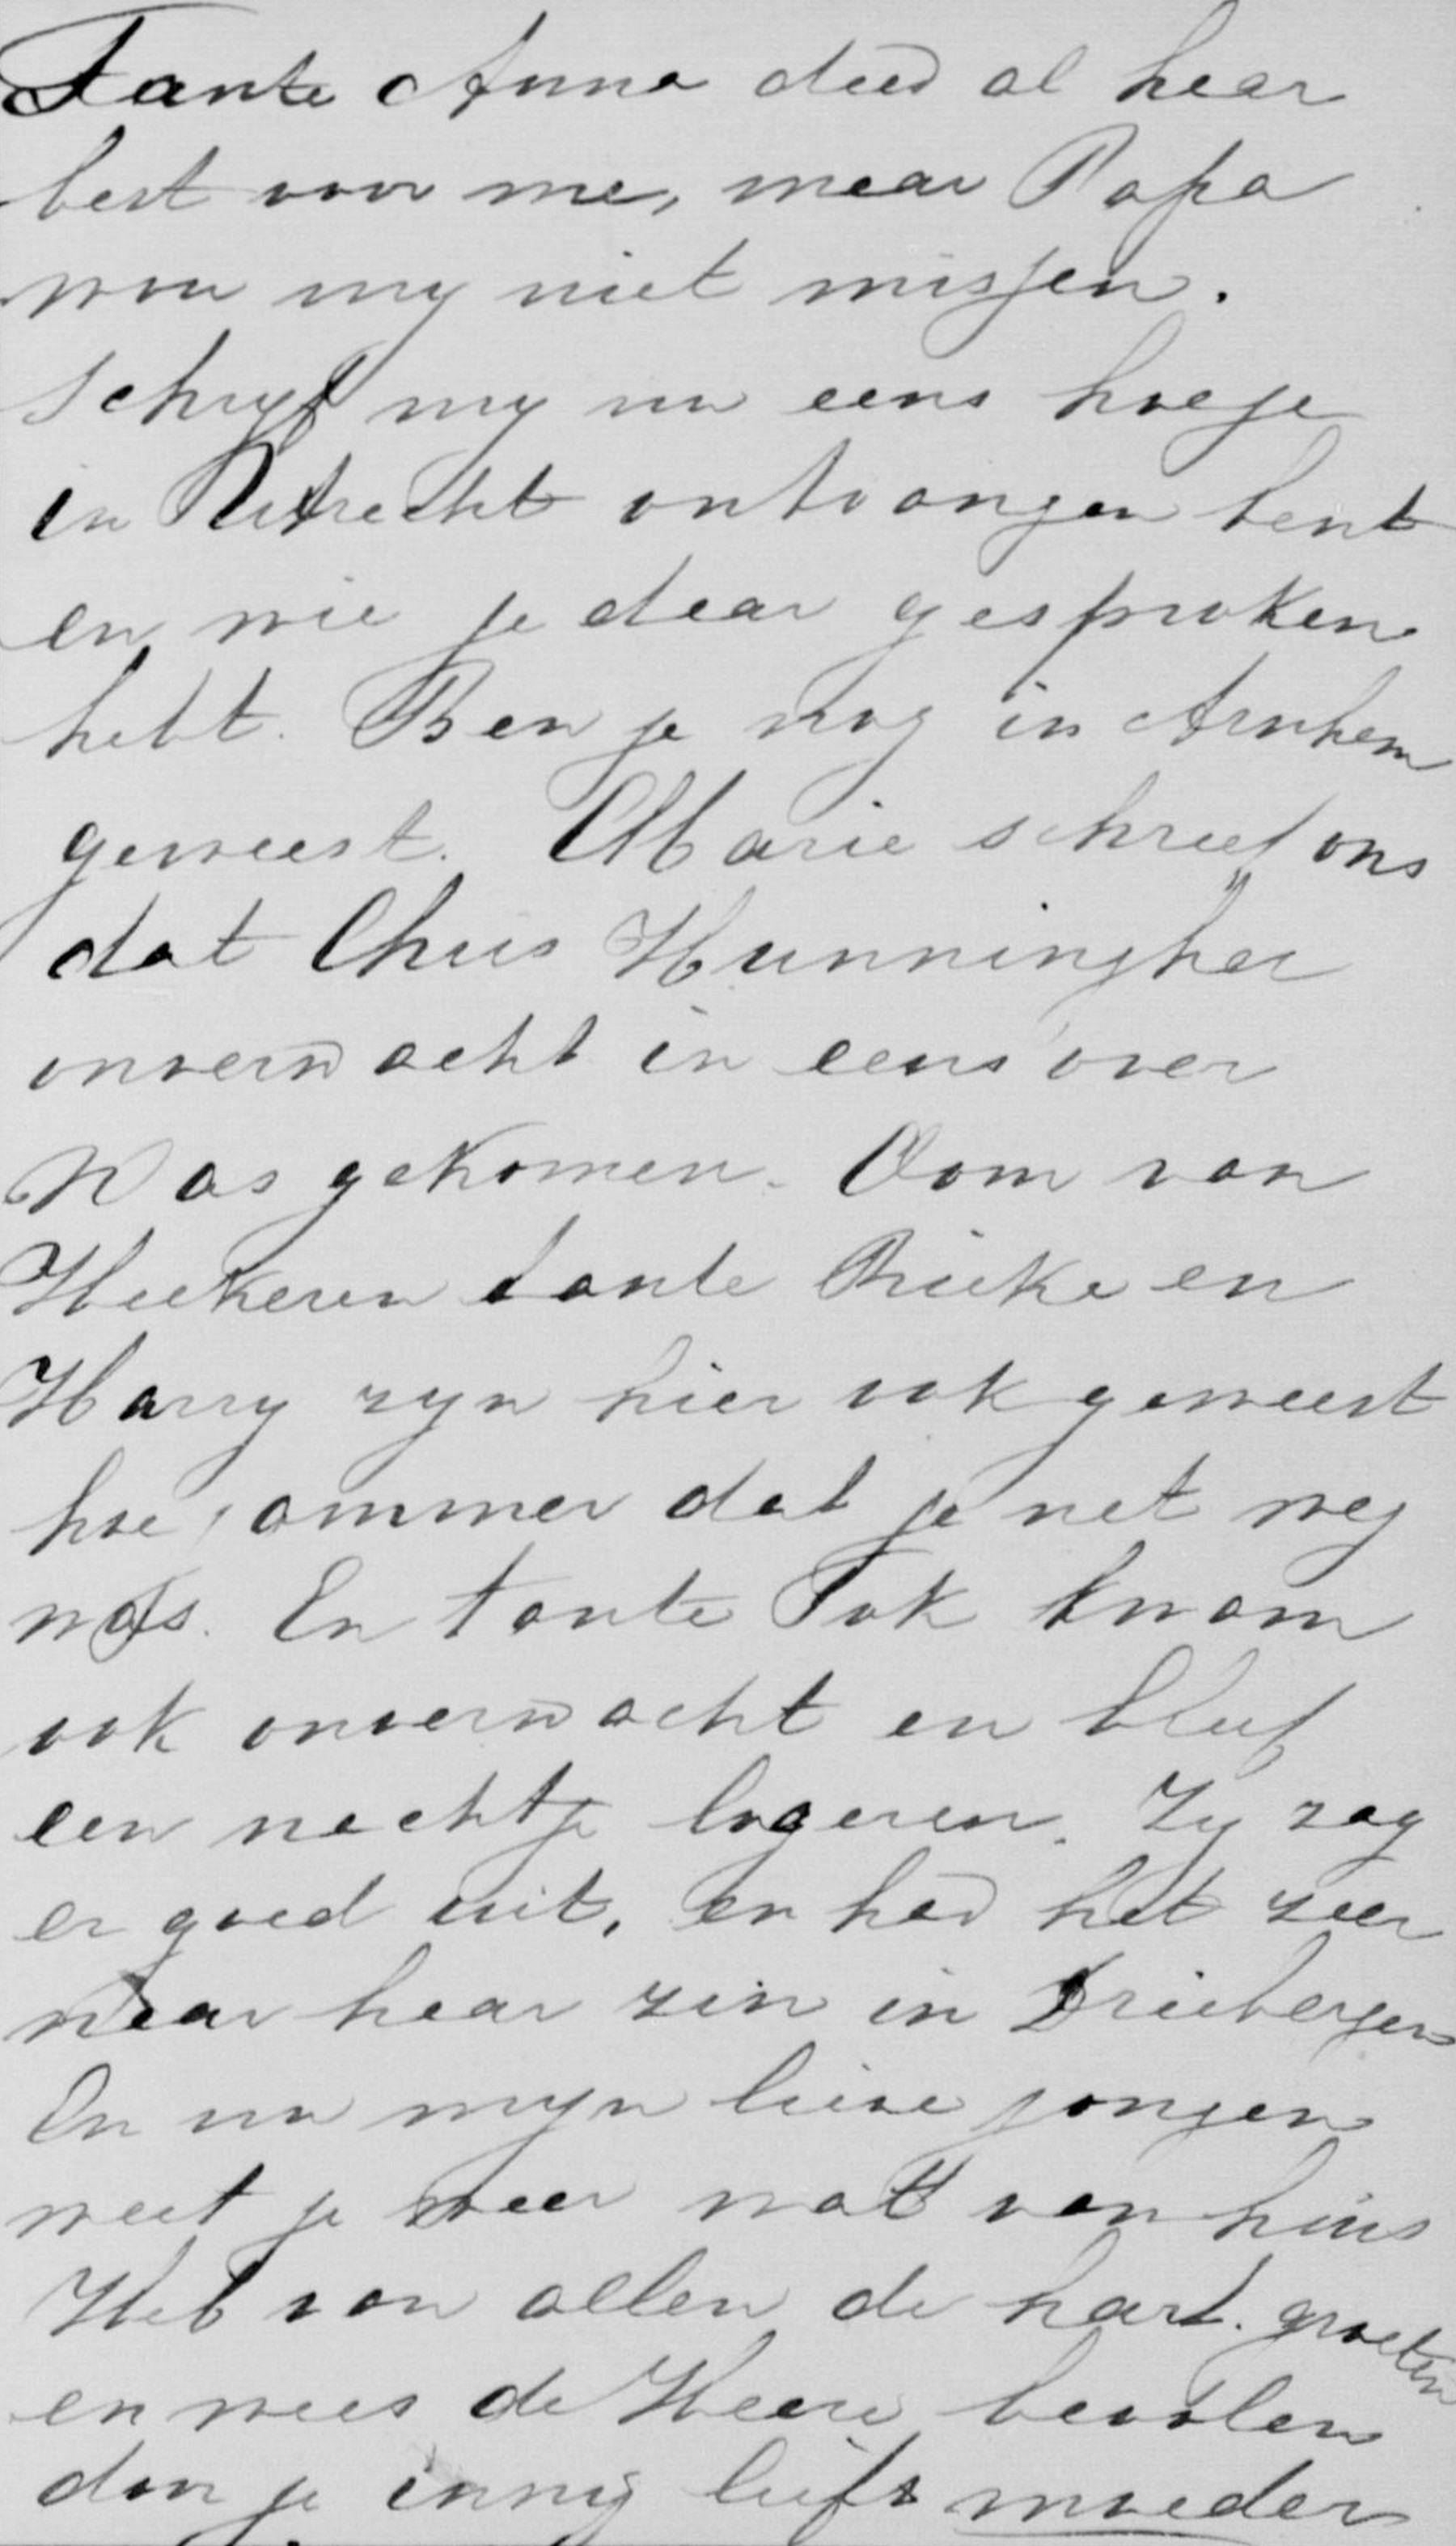 Tante Anna deed al haar
best voor me, maar Papa
wou my niet missen.
Schryf my nu eens hoe je
in Utrecht ontvangen bent
en wie je daar gesproken
hebt. Ben je nog in Arnhem
geweest. Marie schreef ons
dat Chris Hunningher
onverwacht in eens over
was gekomen. Oom van
Heekeren tante Rieke en
Harry zyn hier ook geweest
hoe jammer dat je net weg
was. En tante Tok kwam
ook onverwacht en bleef
een nachtje logeren. Zy zag
er goed uit, en had het zeer
naar haar zin in Driebergen
En nu myn lieve jongen
weet je weer wat van huis
Heb van allen de hart. groeten
en wees de Heere bevolen
door je innig liefh moeder